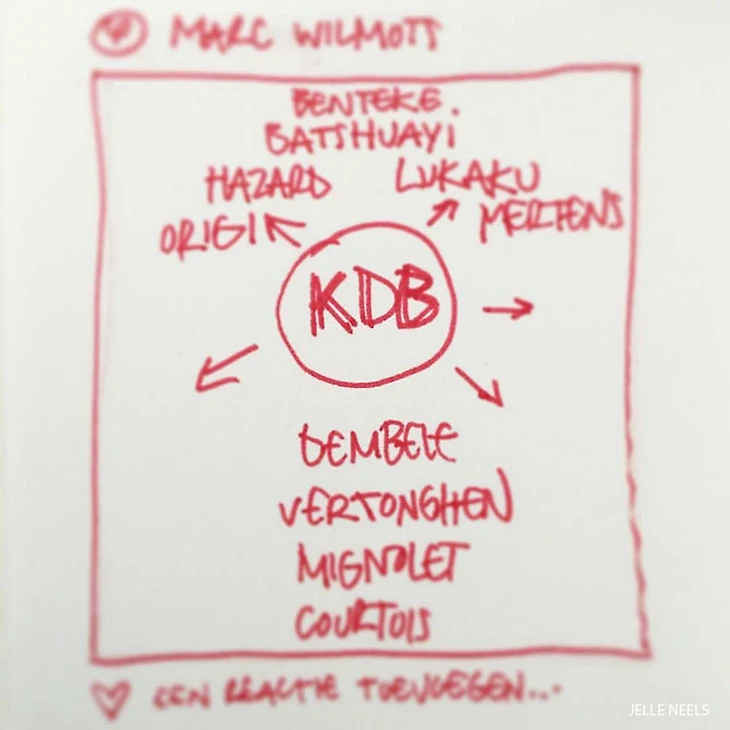 MARC WILMOTS
BENTEKE.
BATSHUAYI
HAZARD LUKAKU
ORIGI MERTENS
KDB
DEMBELE
VERTONGHEN
MIGNOLET
COURTOIS
EEN REACTIE TOEVOEGEN...
JELLE NEELS